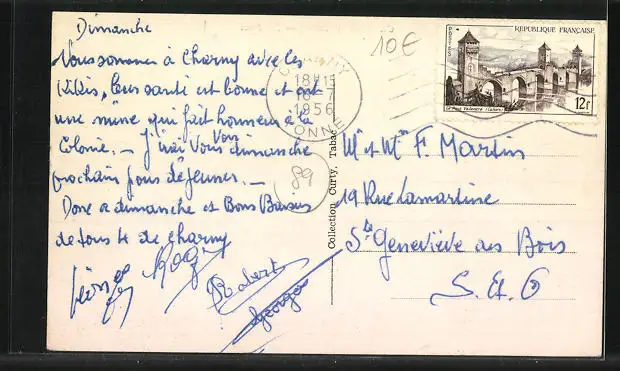 Dimanche
Nous sommes à Charny avec les
Kikis, leur santé est bonne et ont
une mine qui fait honneur à la
Colonie. _ J'irai Vous Voir dimanche
prochain pour déjeuner. _
Donc à dimanche et Bons Baisers
de tous 4 de Charny
Robert
Georges
10€
CHARNY
18H15
1956
YONNE
89
Collection Curty, Tabac
POSTES
REPUBLIQUE FRANÇAISE
12f
Mr et Mme F. Martin
19 Rue Lamartine
Ste Geneviève des Bois
S. et O